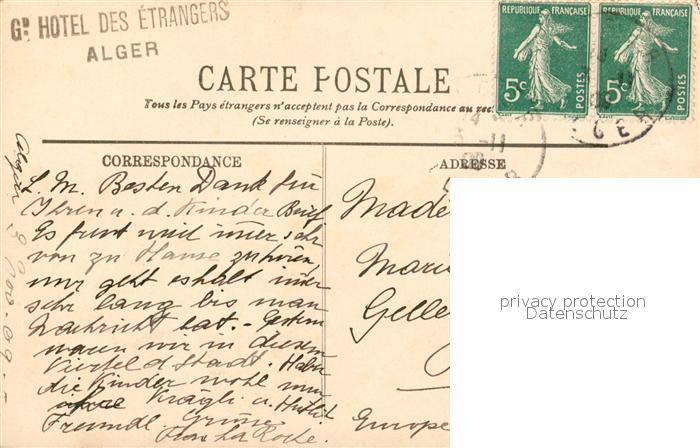 GD HOTEL DES ÉTRANGERS
ALGER
RÉPUBLIQUE FRANÇAISE
5c
POSTES
RÉPUBLIQUE FRANÇAISE
5c
POSTES
CARTE POSTALE
Tous les Pays étrangers n'acceptent pas la Correspondance au
(Se renseigner à la Poste).
CORRESPONDANCE
ADRESSE
L. M. Besten Dank für
Ihren u. d. Kinder Brief
Es freut mich immer sehr
von zu Hause zu hören,
nur geht es halt immer
sehr lang bis man
Nachricht hat. - Gestern
waren wir in diesem
Viertel d Stadt. Habe
die Kinder wohl nur
Krägli u. Hütli
Freundl. Grüsse
Frau La Roche.
Algier
Nov. 09.
Made
Marie
Gelle
Europe
privacy protection
Datenschutz